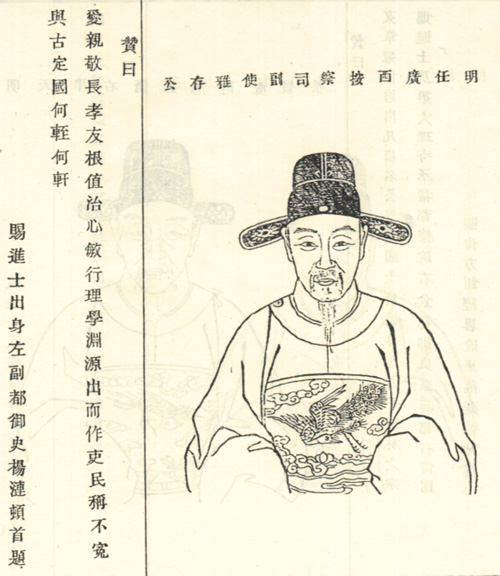 明任廣西按察司副使雅存公
贊曰
愛親敬長孝友根值治心敏行理學淵源出而作吏民稱不寃
與古定國何輊何軒
賜進士出身左副都御史楊漣頓首題